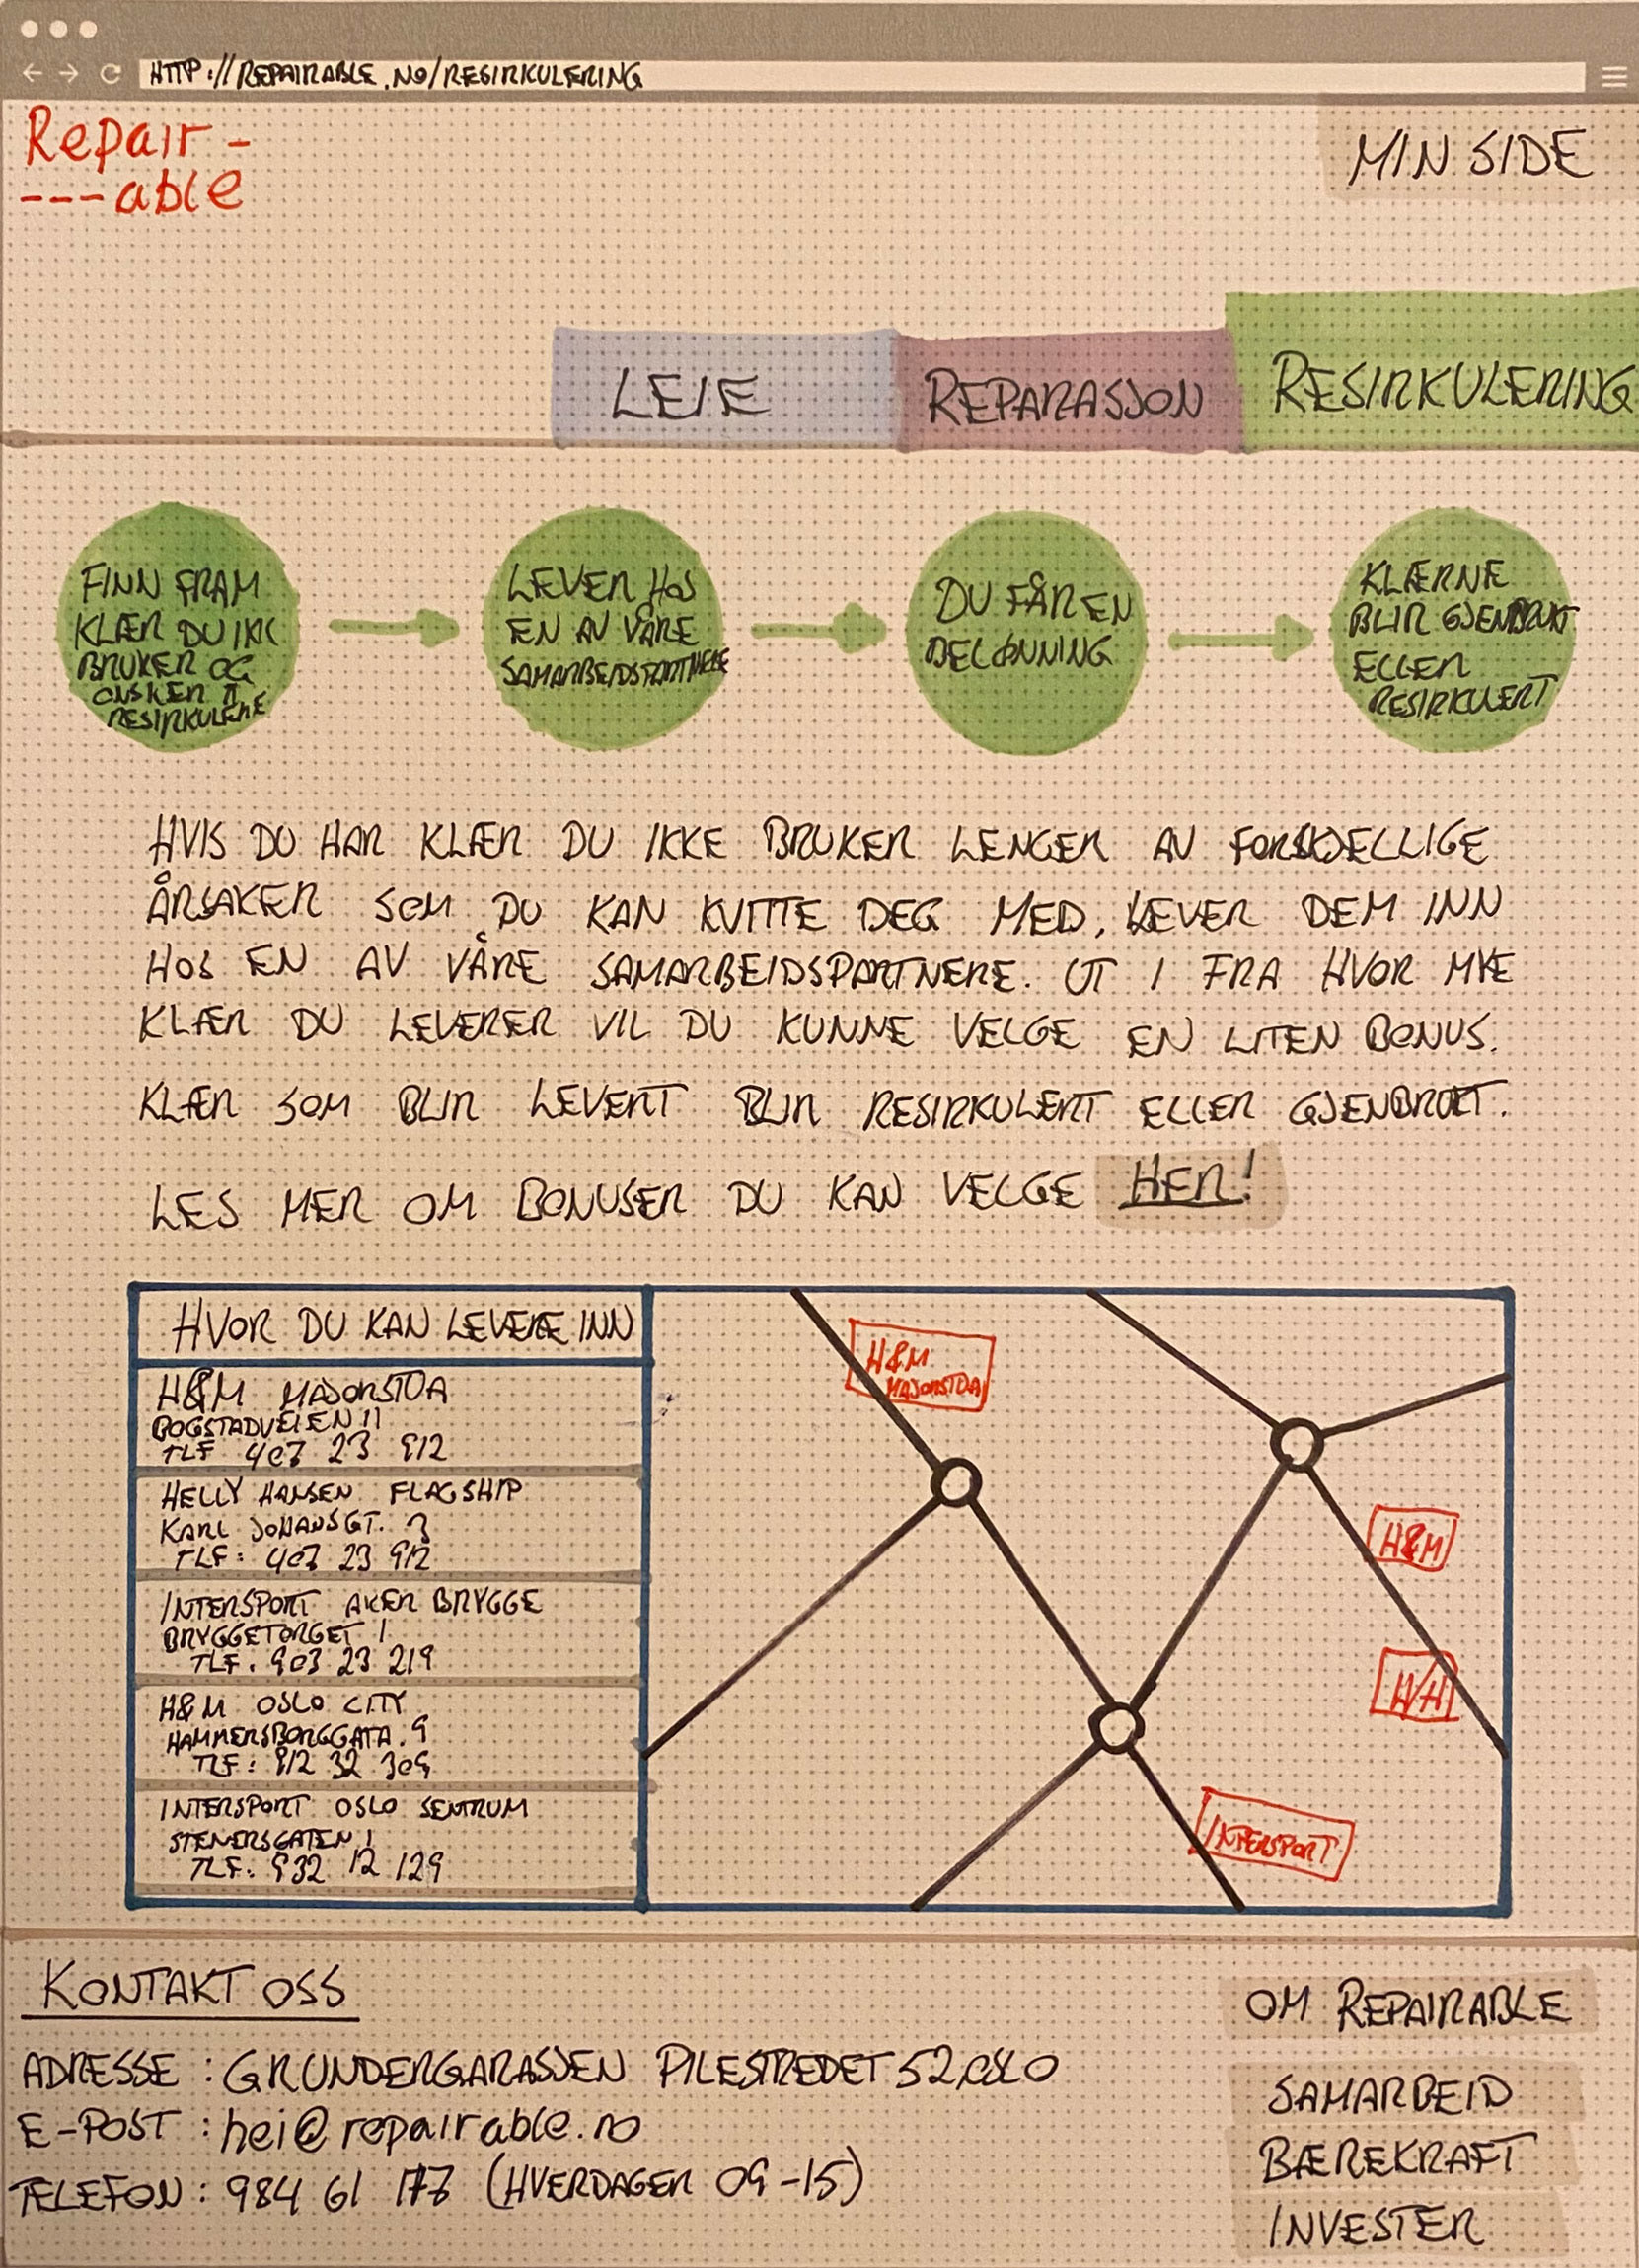 HTTP://REPAIRABLE.NO/RESIRKULERING
Repair-
---able
MIN SIDE
LEIE
REPARASJON
RESIRKULERING
FINN FRAM
KLÆR DU IKK
BRUKER OG
ØNSKER Å
RESIRKULERE
LEVER HOS
EN AV VÅRE
SAMARBEIDSPARTNERE
DU FÅR EN
BELØNNING
KLÆRNE
BLIR GJENBRUKT
ELLER
RESIRKULERT
HVIS DU HAR KLÆR DU IKKE BRUKER LENGER AV FORSKJELLIGE
ÅRSAKER SOM DU KAN KVITTE DEG MED, LEVER DEM INN
HOS EN AV VÅRE SAMARBEIDSPARTNERE. UT I FRA HVOR MYE
KLÆR DU LEVERER VIL DU KUNNE VELGE EN LITEN BONUS.
KLÆR SOM BLIR LEVERT BLIR RESIRKULERT ELLER GJENBRUKT.
LES MER OM BONUSER DU KAN VELGE HER!
HVOR DU KAN LEVERE INN
H&M MAJORSTUA
BOGSTADVEIEN 11
TLF 407 23 912
HELLY HANSEN FLAGSHIP
KARL JOHANSGT. 3
TLF: 407 23 912
INTERSPORT AKER BRYGGE
BRYGGETORGET 1
TLF. 903 23 219
H&M OSLO CITY
HAMMERSBORGGATA. 9
TLF: 912 32 309
INTERSPORT OSLO SENTRUM
STENERSGATEN 1
TLF: 932 12 129
H&M
MAJORSTUA
H&M
H/H
INTERSPORT
KONTAKT OSS
ADRESSE : GRUNDERGARASJEN PILESTREDET 52, OSLO
E-POST : hei@repairable.no
TELEFON : 984 61 177 (HVERDAGER 09-15)
OM REPAIRABLE
SAMARBEID
BÆREKRAFT
INVESTER